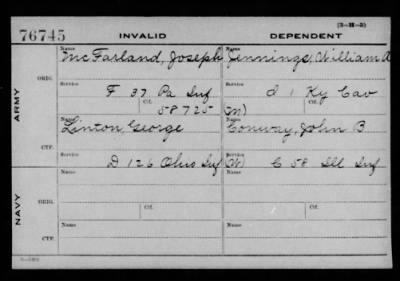 [3-H-3]
76745 INVALID DEPENDENT
ARMY
ORIG.
Name Name
McFarland, Joseph Jennings, William A
Service Service
F 37 Pa Inf d 1 Ky Cav
Ctf. Ctf.
58725 (M)
CTF.
Name Name
Linton, George Conway, John B
Service Service
D 126 Ohio Inf (W) C 58 Ill Inf
NAVY
ORIG.
Name Name
Ctf. Ctf.
CTF.
Name Name